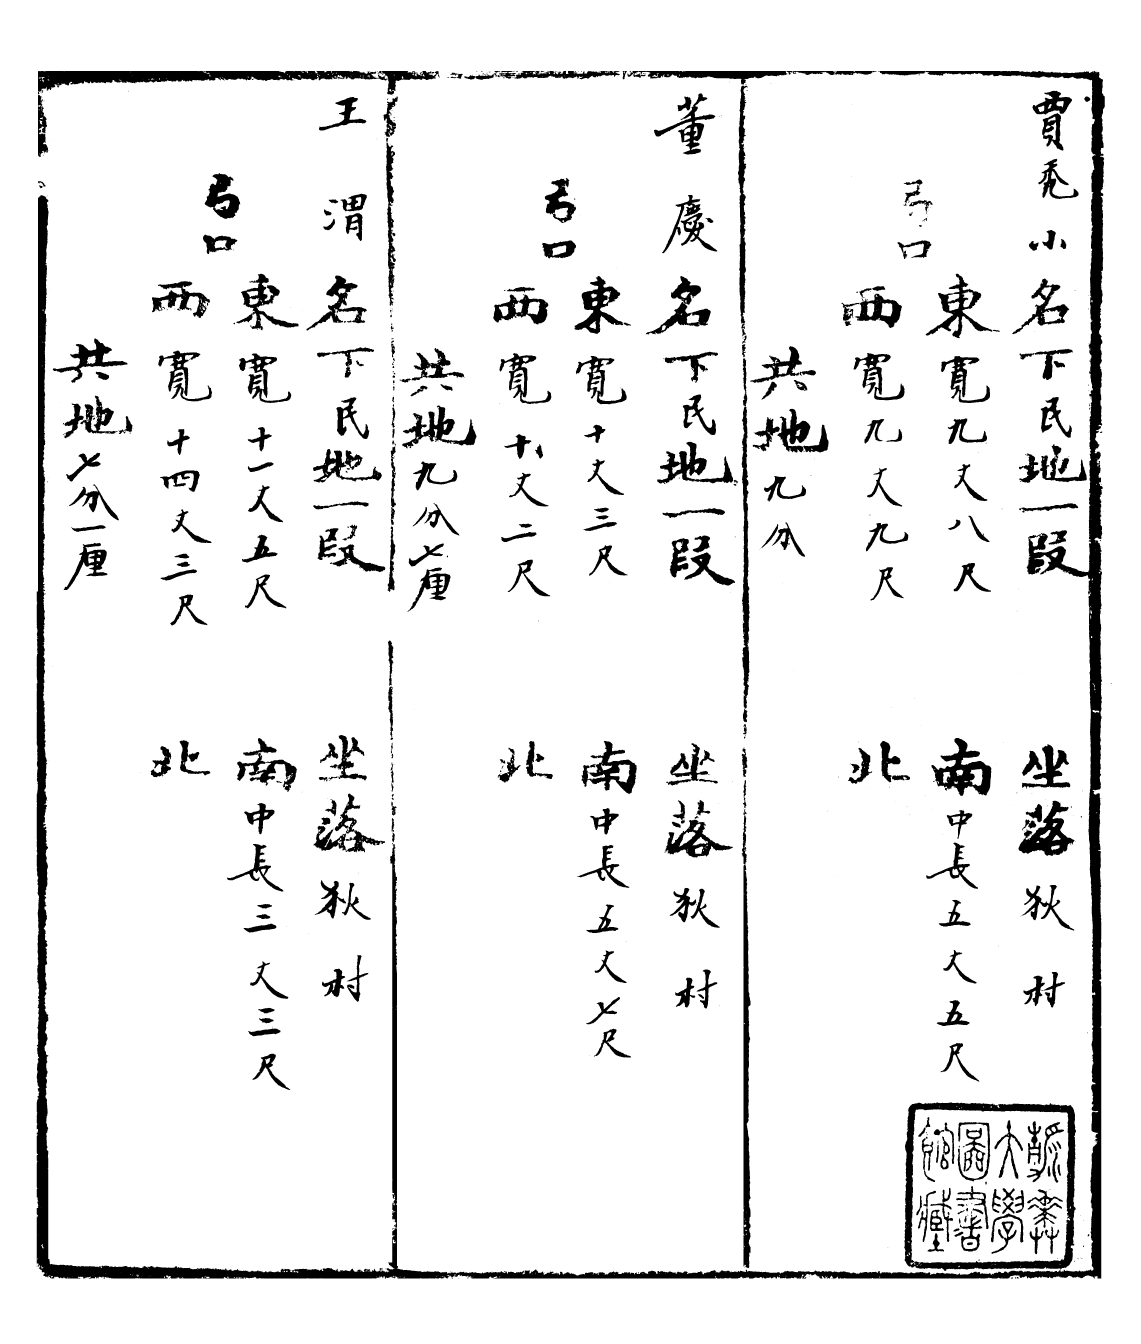 賈禿小名下民地一段 坐落狄村
弓口
東寬九丈八尺 南中長五丈五尺
西寬九丈九尺 北
共地九分
董慶名下民地一段 坐落狄村
弓口
東寬十丈三尺 南中長五丈七尺
西寬十丈二尺 北
共地九分七厘
王渭名下民地一段 坐落狄村
弓口
東寬十一丈五尺 南中長三丈三尺
西寬十四丈三尺 北
共地七分一厘
大學
圖書
館藏